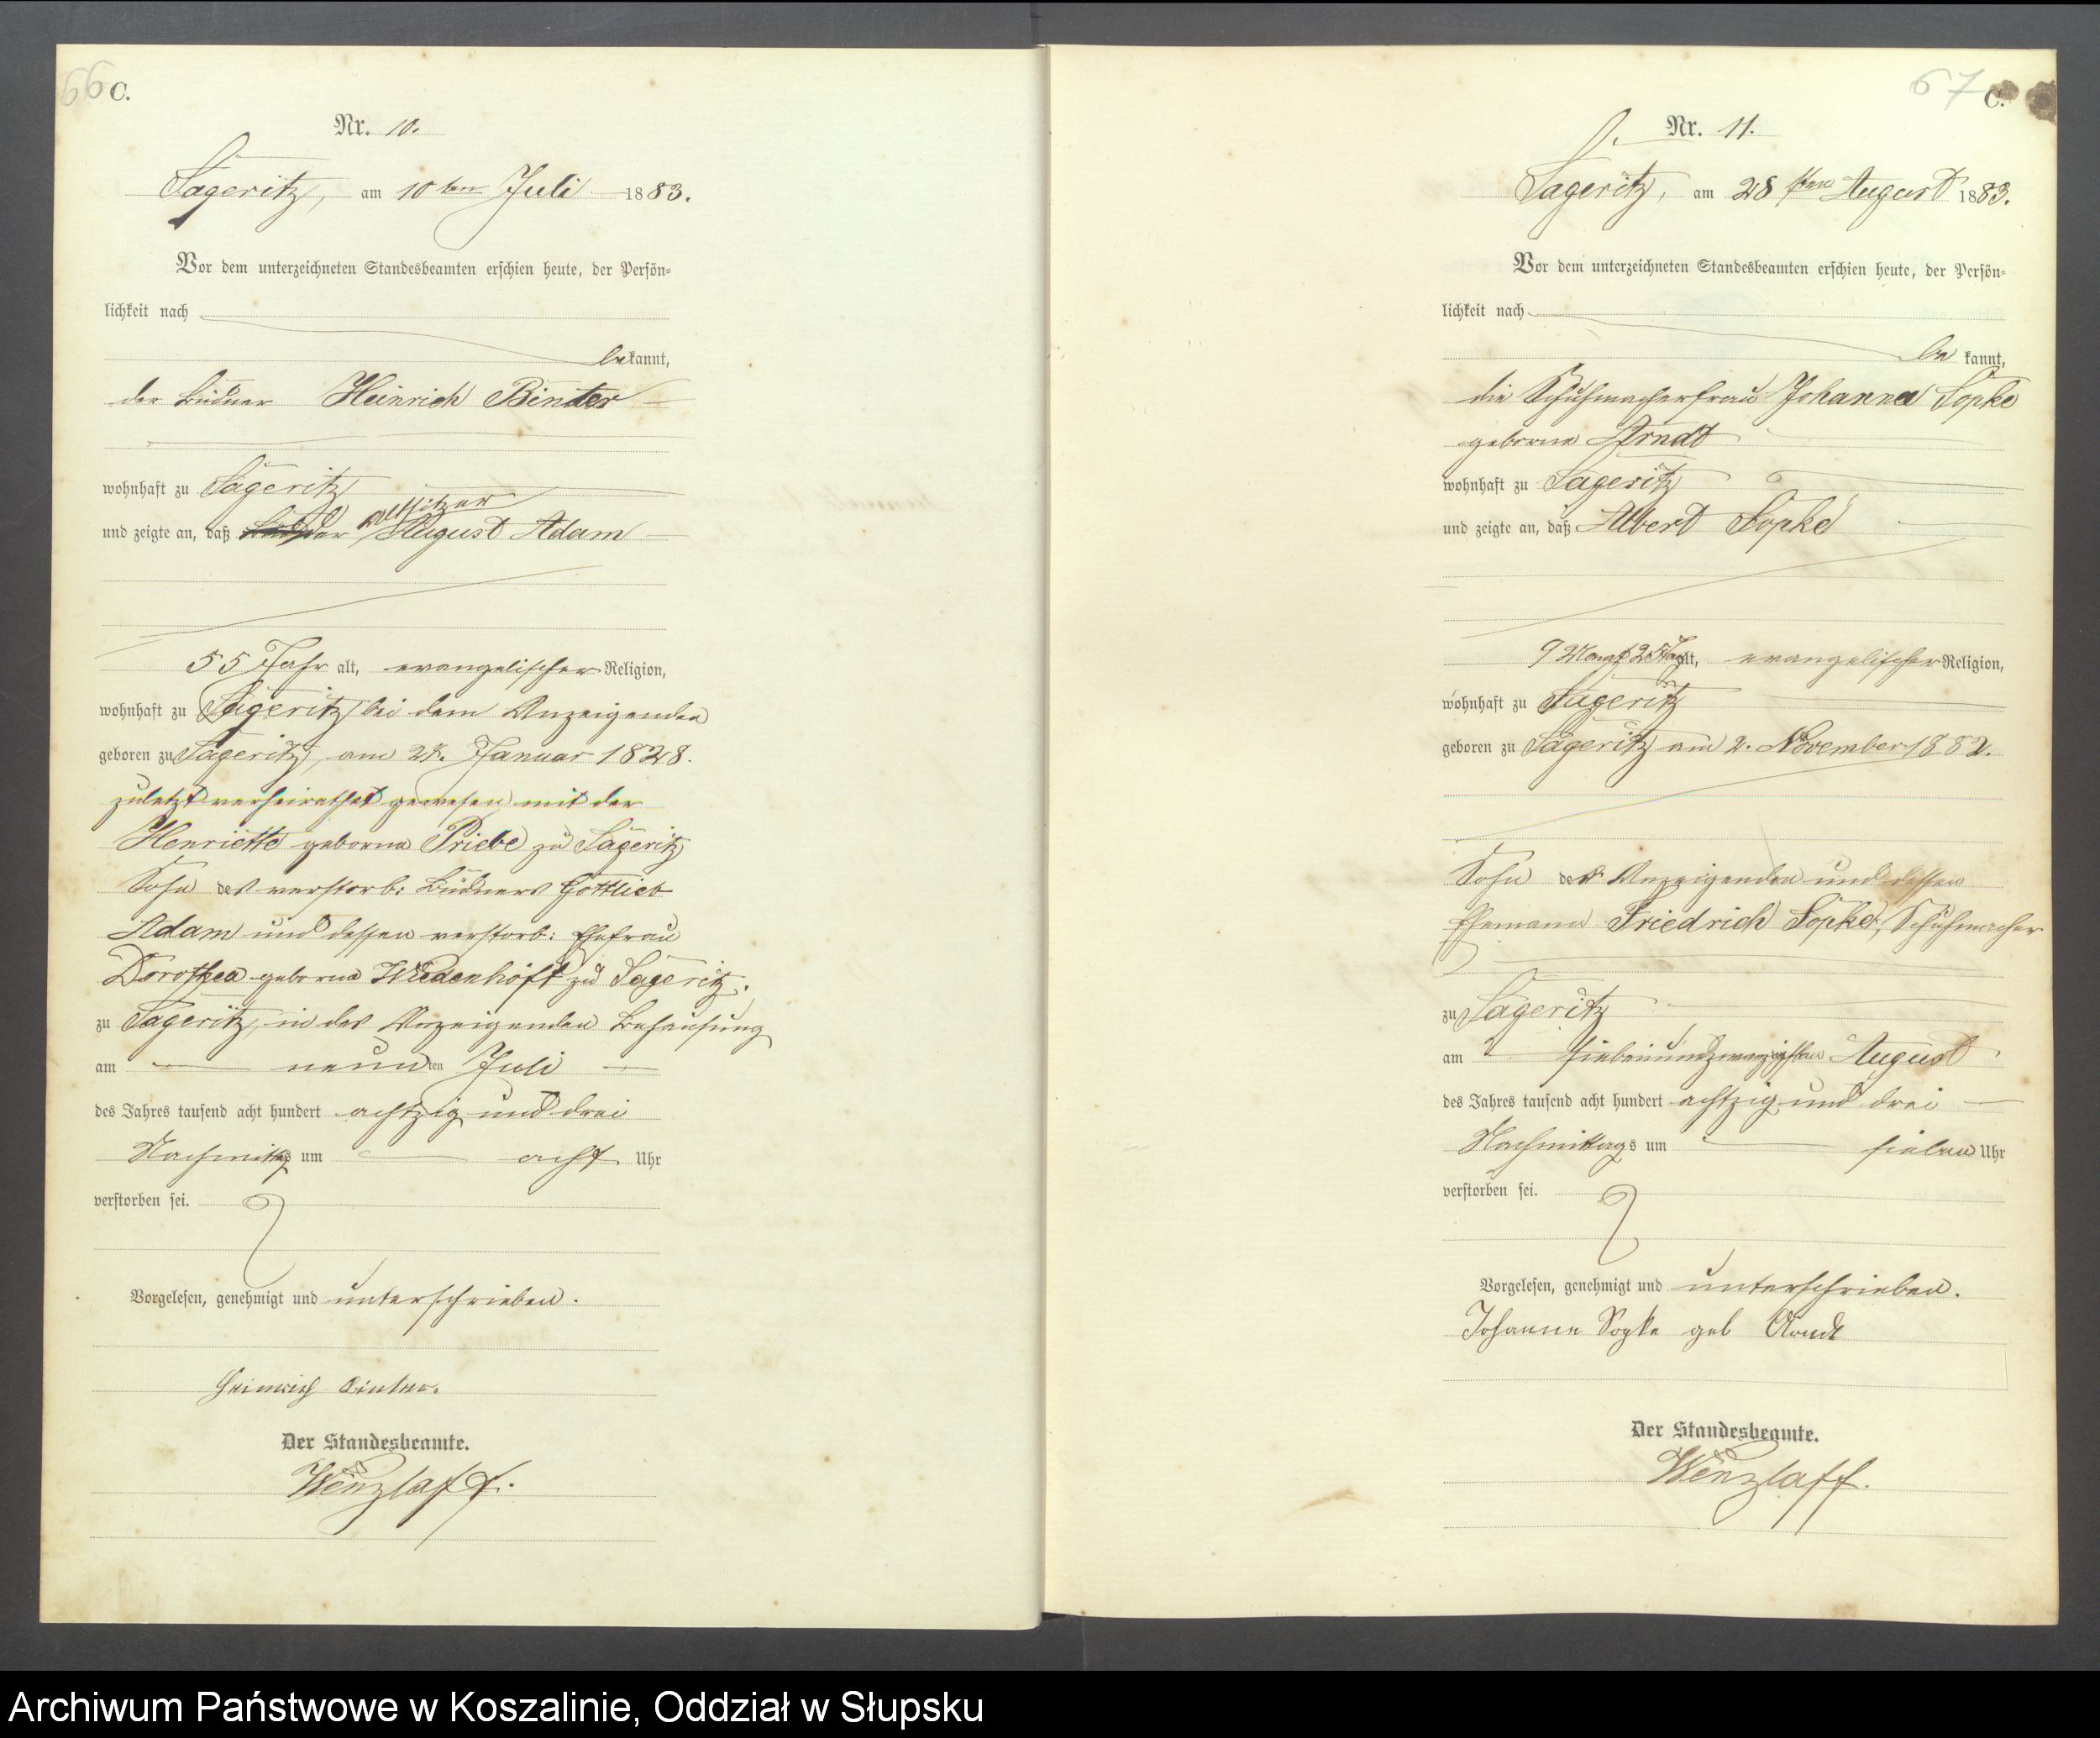 66 C.
Nr. 10.
Sageritz, am 10ten Juli 1883.
Vor dem unterzeichneten Standesbeamten erschien heute, der Persön-
lichkeit nach
bekannt,
der Büdner Heinrich Binder
wohnhaft zu Sageritz
Altsitzer
und zeigte an, daß der August Adam
55 Jahr alt, evangelischer Religion,
wohnhaft zu Sageritz bei dem Anzeigenden
geboren zu Sageritz, am Januar 1828.
zuletzt verheirathet gewesen mit der
Henriette geborne Priebe zu Sageritz
Sohn des verstorb: Büdners Gottlieb
Adam und dessen verstorb: Ehefrau
Dorothea geborne Wiedenhöft zu Sageritz.
zu Sageritz, in des Anzeigenden Behausung
am neunten Juli
des Jahres tausend acht hundert achtzig und drei
Nachmittags um acht Uhr
verstorben sei.
Vorgelesen, genehmigt und unterschrieben.
Heinrich Binder.
Der Standesbeamte.
Wenzlaff.
67 C.
Nr. 11.
Sageritz, am 28sten August 1883.
Vor dem unterzeichneten Standesbeamten erschien heute, der Persön-
lichkeit nach
be kannt,
die Schuhmacherfrau Johanna Sopke
geborne Arndt
wohnhaft zu Sageritz
und zeigte an, daß Albert Sopke
9 Monat 25 Tag alt, evangelischer Religion,
wohnhaft zu Sageritz
geboren zu Sageritz am 2. November 1882.
Sohn der Anzeigenden und dessen
Ehemann Friedrich Sopke, Schuhmacher
zu Sageritz
am siebenundzwanzigsten August
des Jahres tausend acht hundert achtzig und drei
Nachmittags um sieben Uhr
verstorben sei.
Vorgelesen, genehmigt und unterschrieben.
Johanne Sopke geb Arndt
Der Standesbeamte.
Wenzlaff.
Archiwum Państwowe w Koszalinie, Oddział w Słupsku